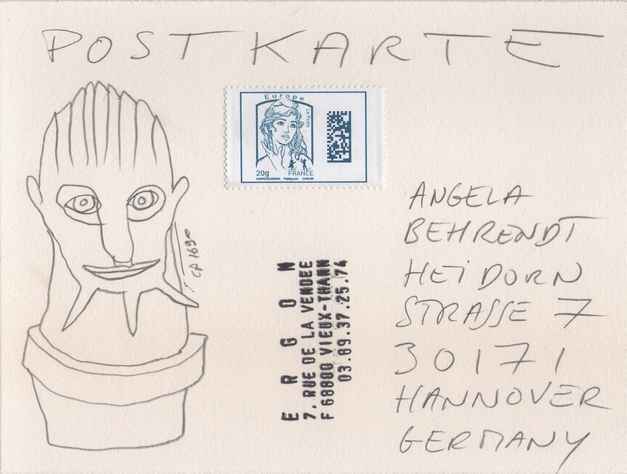 POSTKARTE
Europe
20g
FRANCE
ANGELA
BEHRENDT
HEIDORN
STRASSE 7
30171
HANNOVER
GERMANY
ERGON
7, RUE DE LA VENDEE
F 68800 VIEUX-THANN
03.89.37.25.74